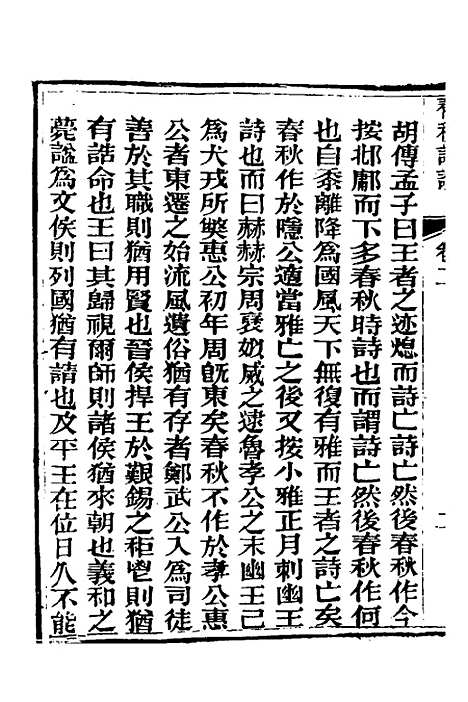 胡傳孟子曰王者之迹熄而詩亡詩亡然後春秋作今
按邶鄘而下多春秋時詩也而謂詩亡然後春秋作何
也自黍離降爲國風天下無復有雅而王者之詩亡矣
春秋作於隱公適當雅亡之後又按小雅正月刺幽王
詩也而曰赫赫宗周襃姒烕之逮魯孝公之末幽王已
爲犬戎所斃惠公初年周旣東矣春秋不作於孝公惠
公者東遷之始流風遺俗猶有存者鄭武公入爲司徒
善於其職則猶用賢也晉侯捍王於艱錫之秬鬯則猶
有誥命也王曰其歸視爾師則諸侯猶來朝也義和之
薨諡爲文侯則列國猶有請也及平王在位日久不能
卷二
二